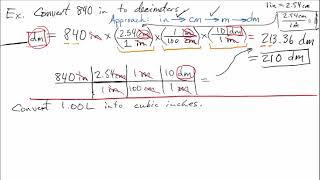 Ex. Convert 840 in to decimeters. 1 in = 2.54 cm
Approach: in → cm → m → dm
2.54 cm / 1 in
dm = 840 in × (2.54 cm / 1 in) × (1 m / 100 cm) × (10 dm / 1 m) = 213.36 dm
= 210 dm
840 in | 2.54 cm | 1 m | 10 dm =
1 in | 100 cm | 1 m
Convert 1.00 L into cubic inches.